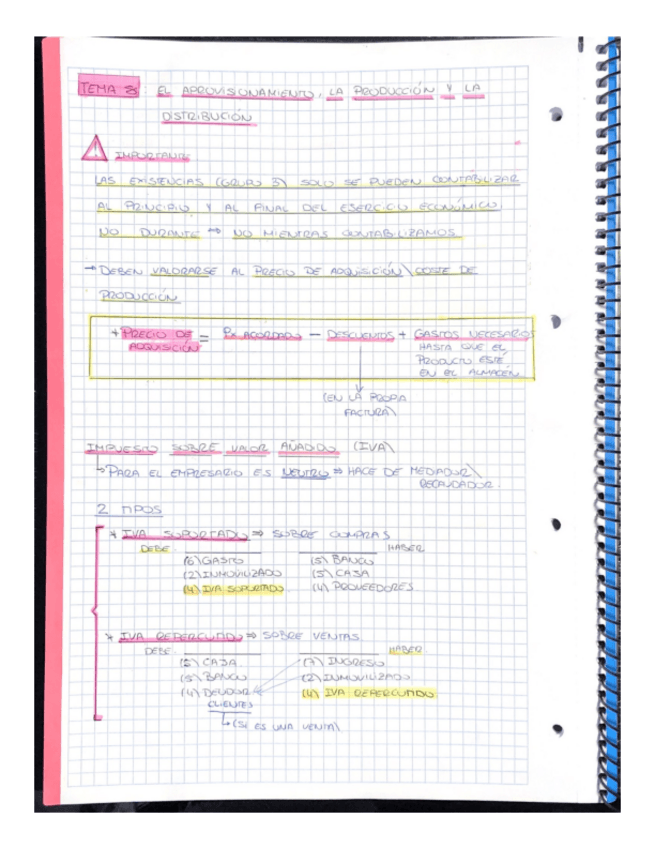 TEMA 8: EL APROVISIONAMIENTO, LA PRODUCCIÓN Y LA
DISTRIBUCIÓN
IMPORTANTE
LAS EXISTENCIAS (GRUPO 3) SOLO SE PUEDEN CONTABILIZAR
AL PRINCIPIO Y AL FINAL DEL ESERCICIO ECONÓMICO.
NO DURANTE ⇒ NO MIENTRAS CONTABILIZAMOS.
→ DEBEN VALORARSE AL PRECIO DE ADQUISICIÓN \ COSTE DE
PRODUCCIÓN
* PRECIO DE ADQUISICIÓN = Px ACORDADO - DESCUENTOS + GASTOS NECESARIOS
HASTA QUE EL
PRODUCTO ESTÉ
EN EL ALMACÉN
(EN LA PROPIA
FACTURA)
IMPUESTO SOBRE VALOR AÑADIDO (IVA)
↳ PARA EL EMPRESARIO ES NEUTRO ⇒ HACE DE MEDIADOR \
RECAUDADOR.
2 TIPOS
* IVA SOPORTADO ⇒ SOBRE COMPRAS
DEBE HABER
(6) GASTO (5) BANCO
(2) INMOVILIZADO (5) CAJA
(4) IVA SOPORTADO (4) PROVEEDORES
* IVA REPERCUTIDO ⇒ SOBRE VENTAS
DEBE HABER
(5) CAJA (7) INGRESO
(5) BANCO (2) INMOVILIZADO
(4) DEUDOR (4) IVA REPERCUTIDO
CLIENTES
↳ (SI ES UNA VENTA)